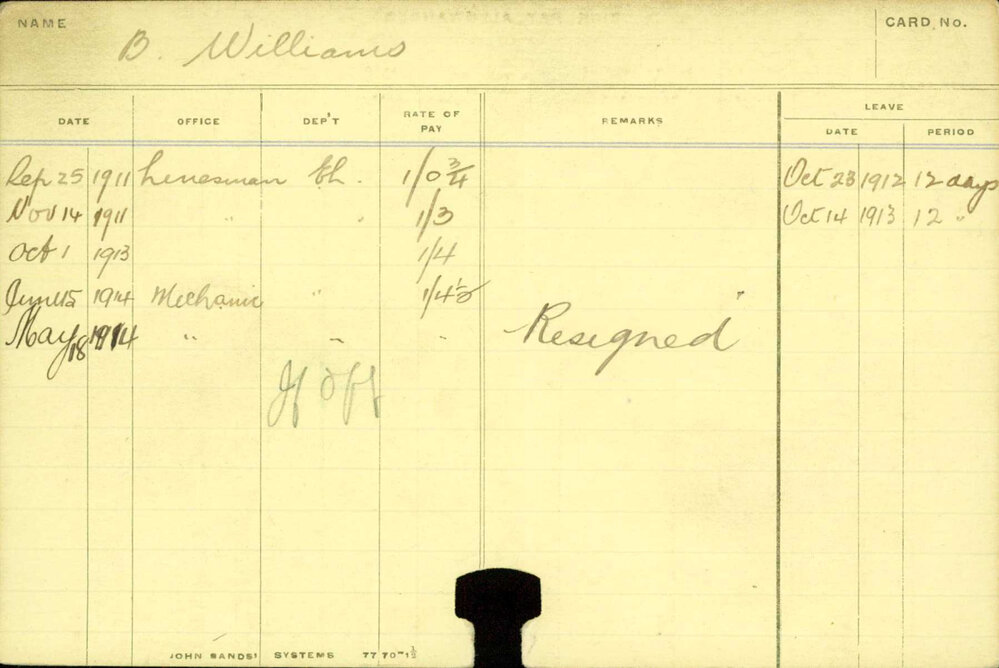 NAME B. Williams CARD No.
DATE OFFICE DEP'T RATE OF PAY REMARKS LEAVE
DATE PERIOD
Sep 25 1911 Linesman Eh. 1/0 3/4 Oct 23 1912 12 days
Nov 14 1911 " " 1/3 Oct 14 1913 12 "
Oct 1 1913 1/4
1914 Mechanic " 1/4½
May 18 1914 " " " Resigned
JOHN SANDS' SYSTEMS 7770-1½